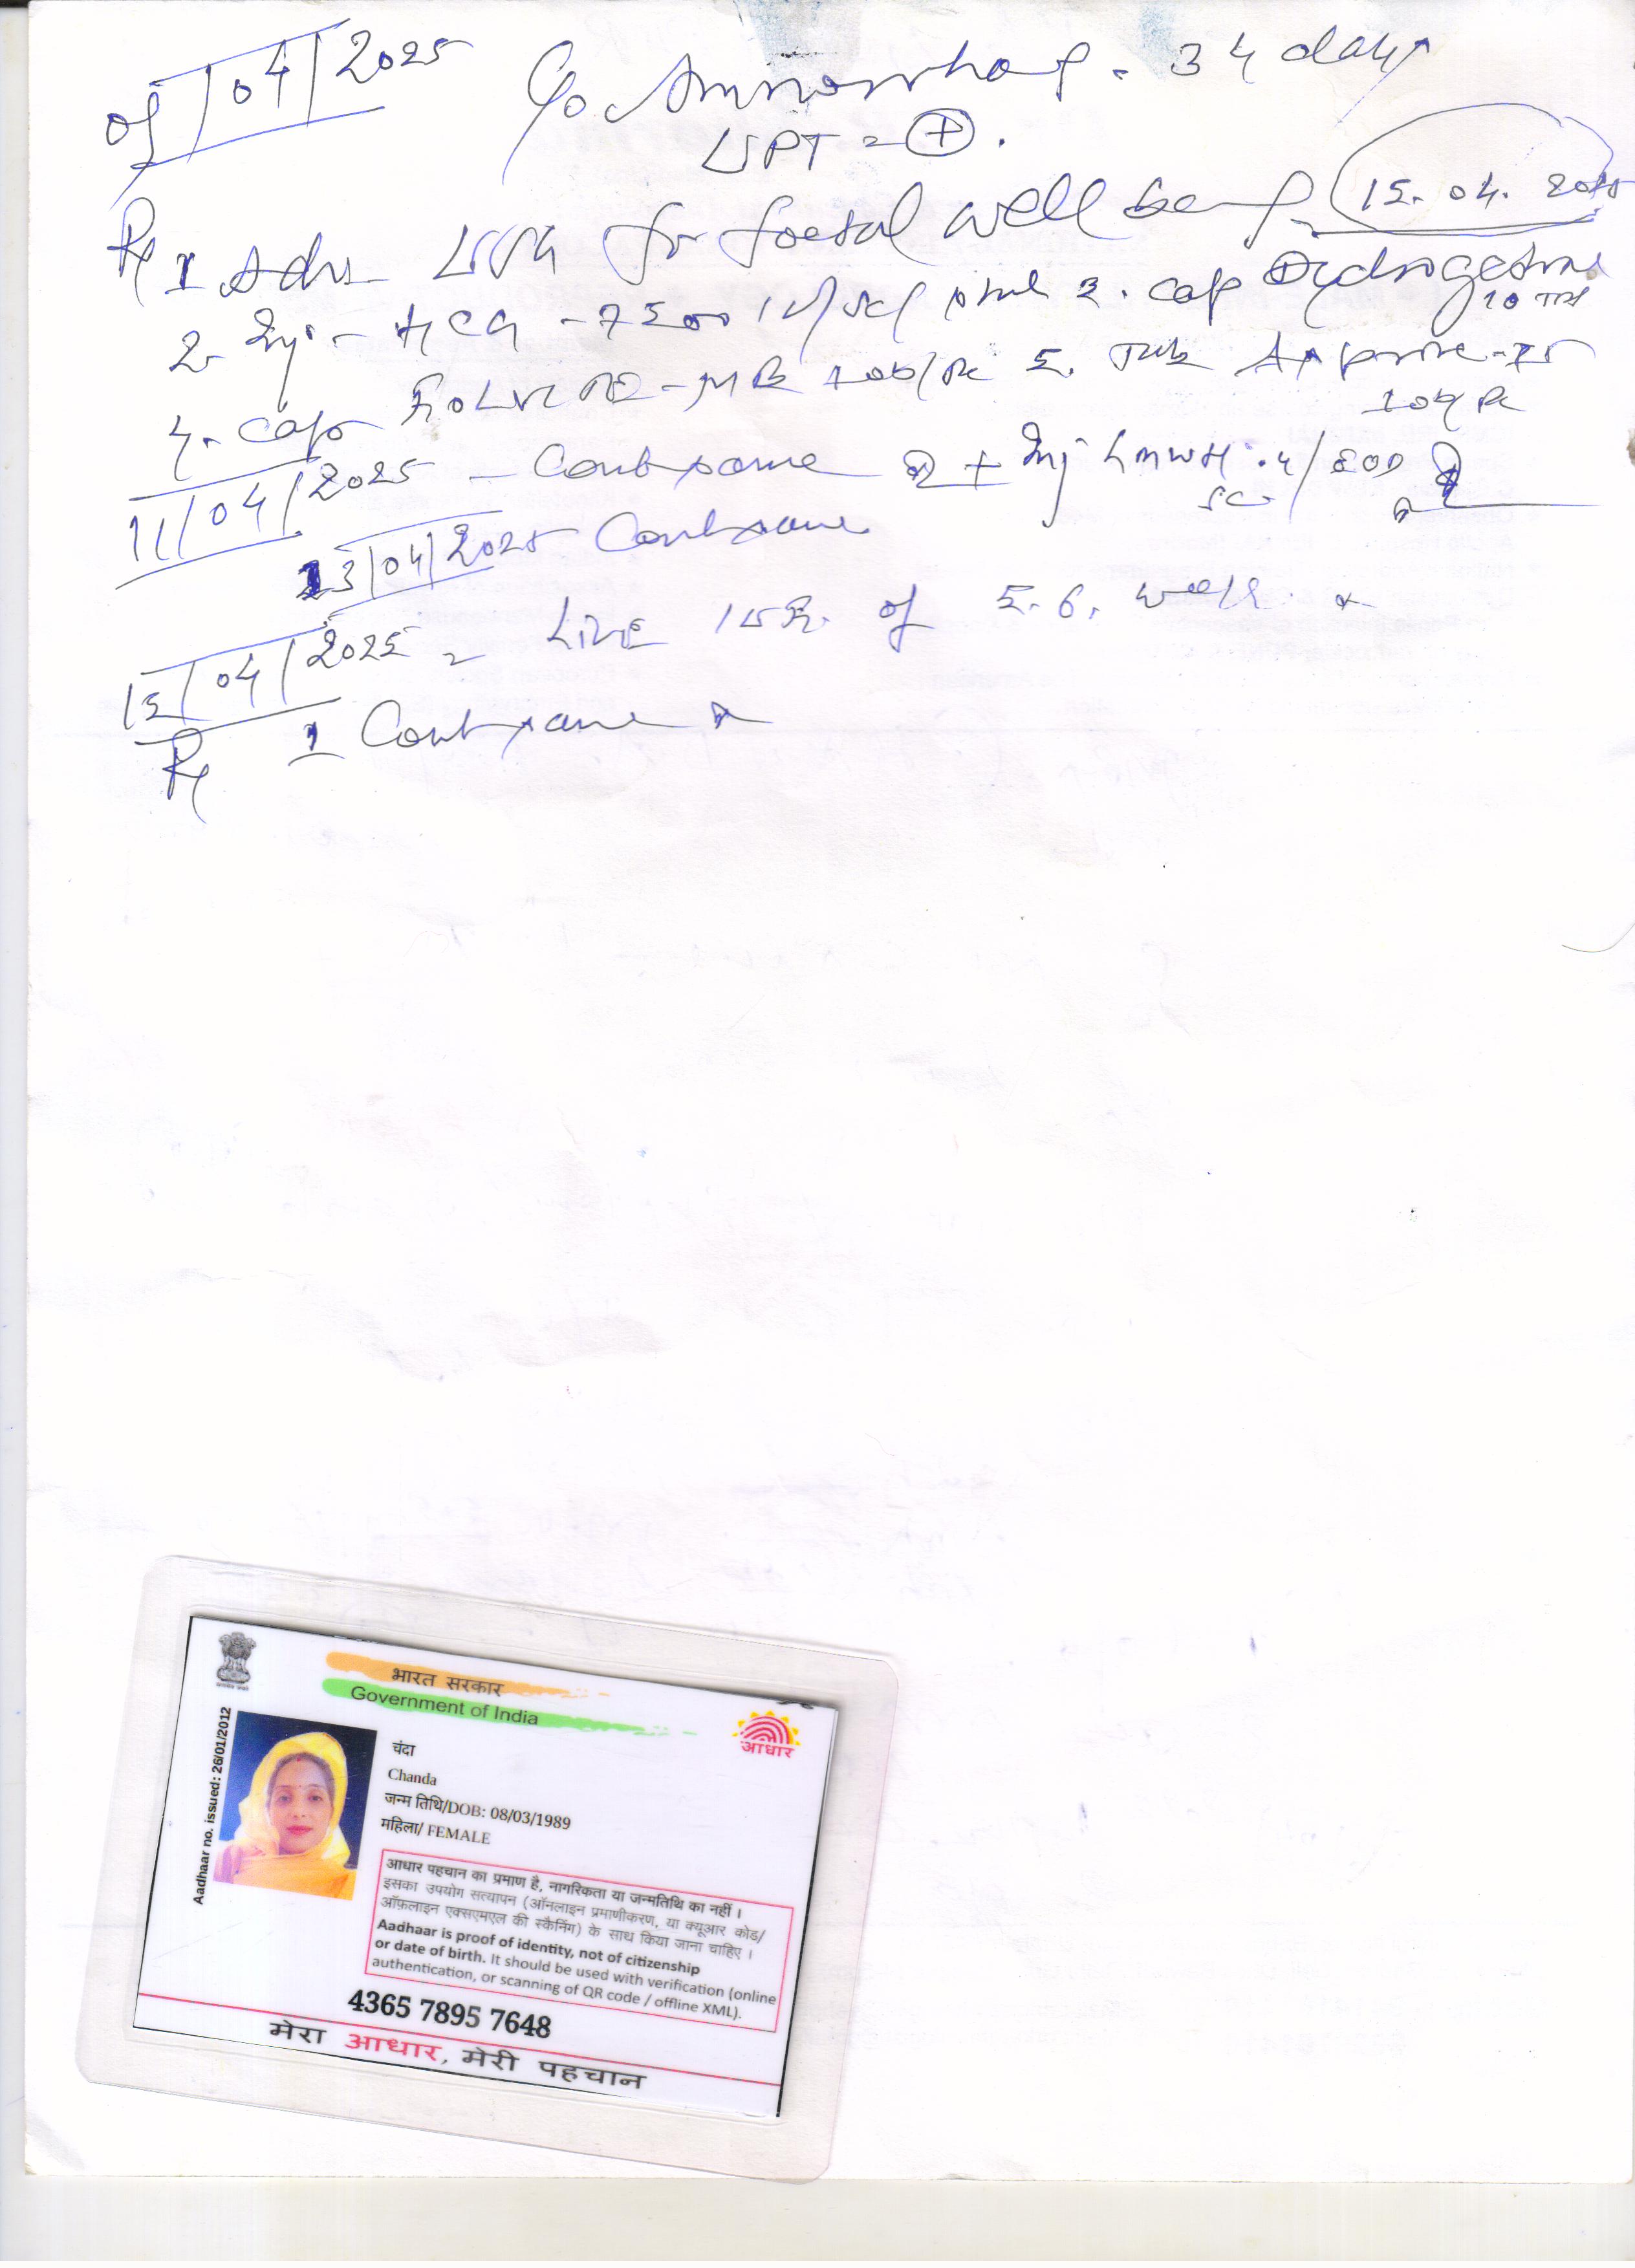 /04/2025 C/o Amnorrhoef. 34 days
UPT = ⊕.
Rx 1 Adv USG for foetal well being 15.04.2025
2. Inj - HCG - 7500 IU/SC/ 3. Cap Hydrogestrone
10
4. Cap FOLVITE-MB 5. Tab 75
11/04/2025 - Cont same + Inj LMWH .4/EOD
SC
13/04/2025 Cont same
15/04/2025 = LIVE IUP. of 5.6. week
Rx 1 Cont same
भारत सरकार
Government of India
आधार
Aadhaar no. issued: 26/01/2012
चंदा
Chanda
जन्म तिथि/DOB: 08/03/1989
महिला/ FEMALE
आधार पहचान का प्रमाण है, नागरिकता या जन्मतिथि का नहीं ।
इसका उपयोग सत्यापन (ऑनलाइन प्रमाणीकरण, या क्यूआर कोड/
ऑफ़लाइन एक्सएमएल की स्कैनिंग) के साथ किया जाना चाहिए ।
Aadhaar is proof of identity, not of citizenship
or date of birth. It should be used with verification (online
authentication, or scanning of QR code / offline XML).
4365 7895 7648
मेरा आधार, मेरी पहचान